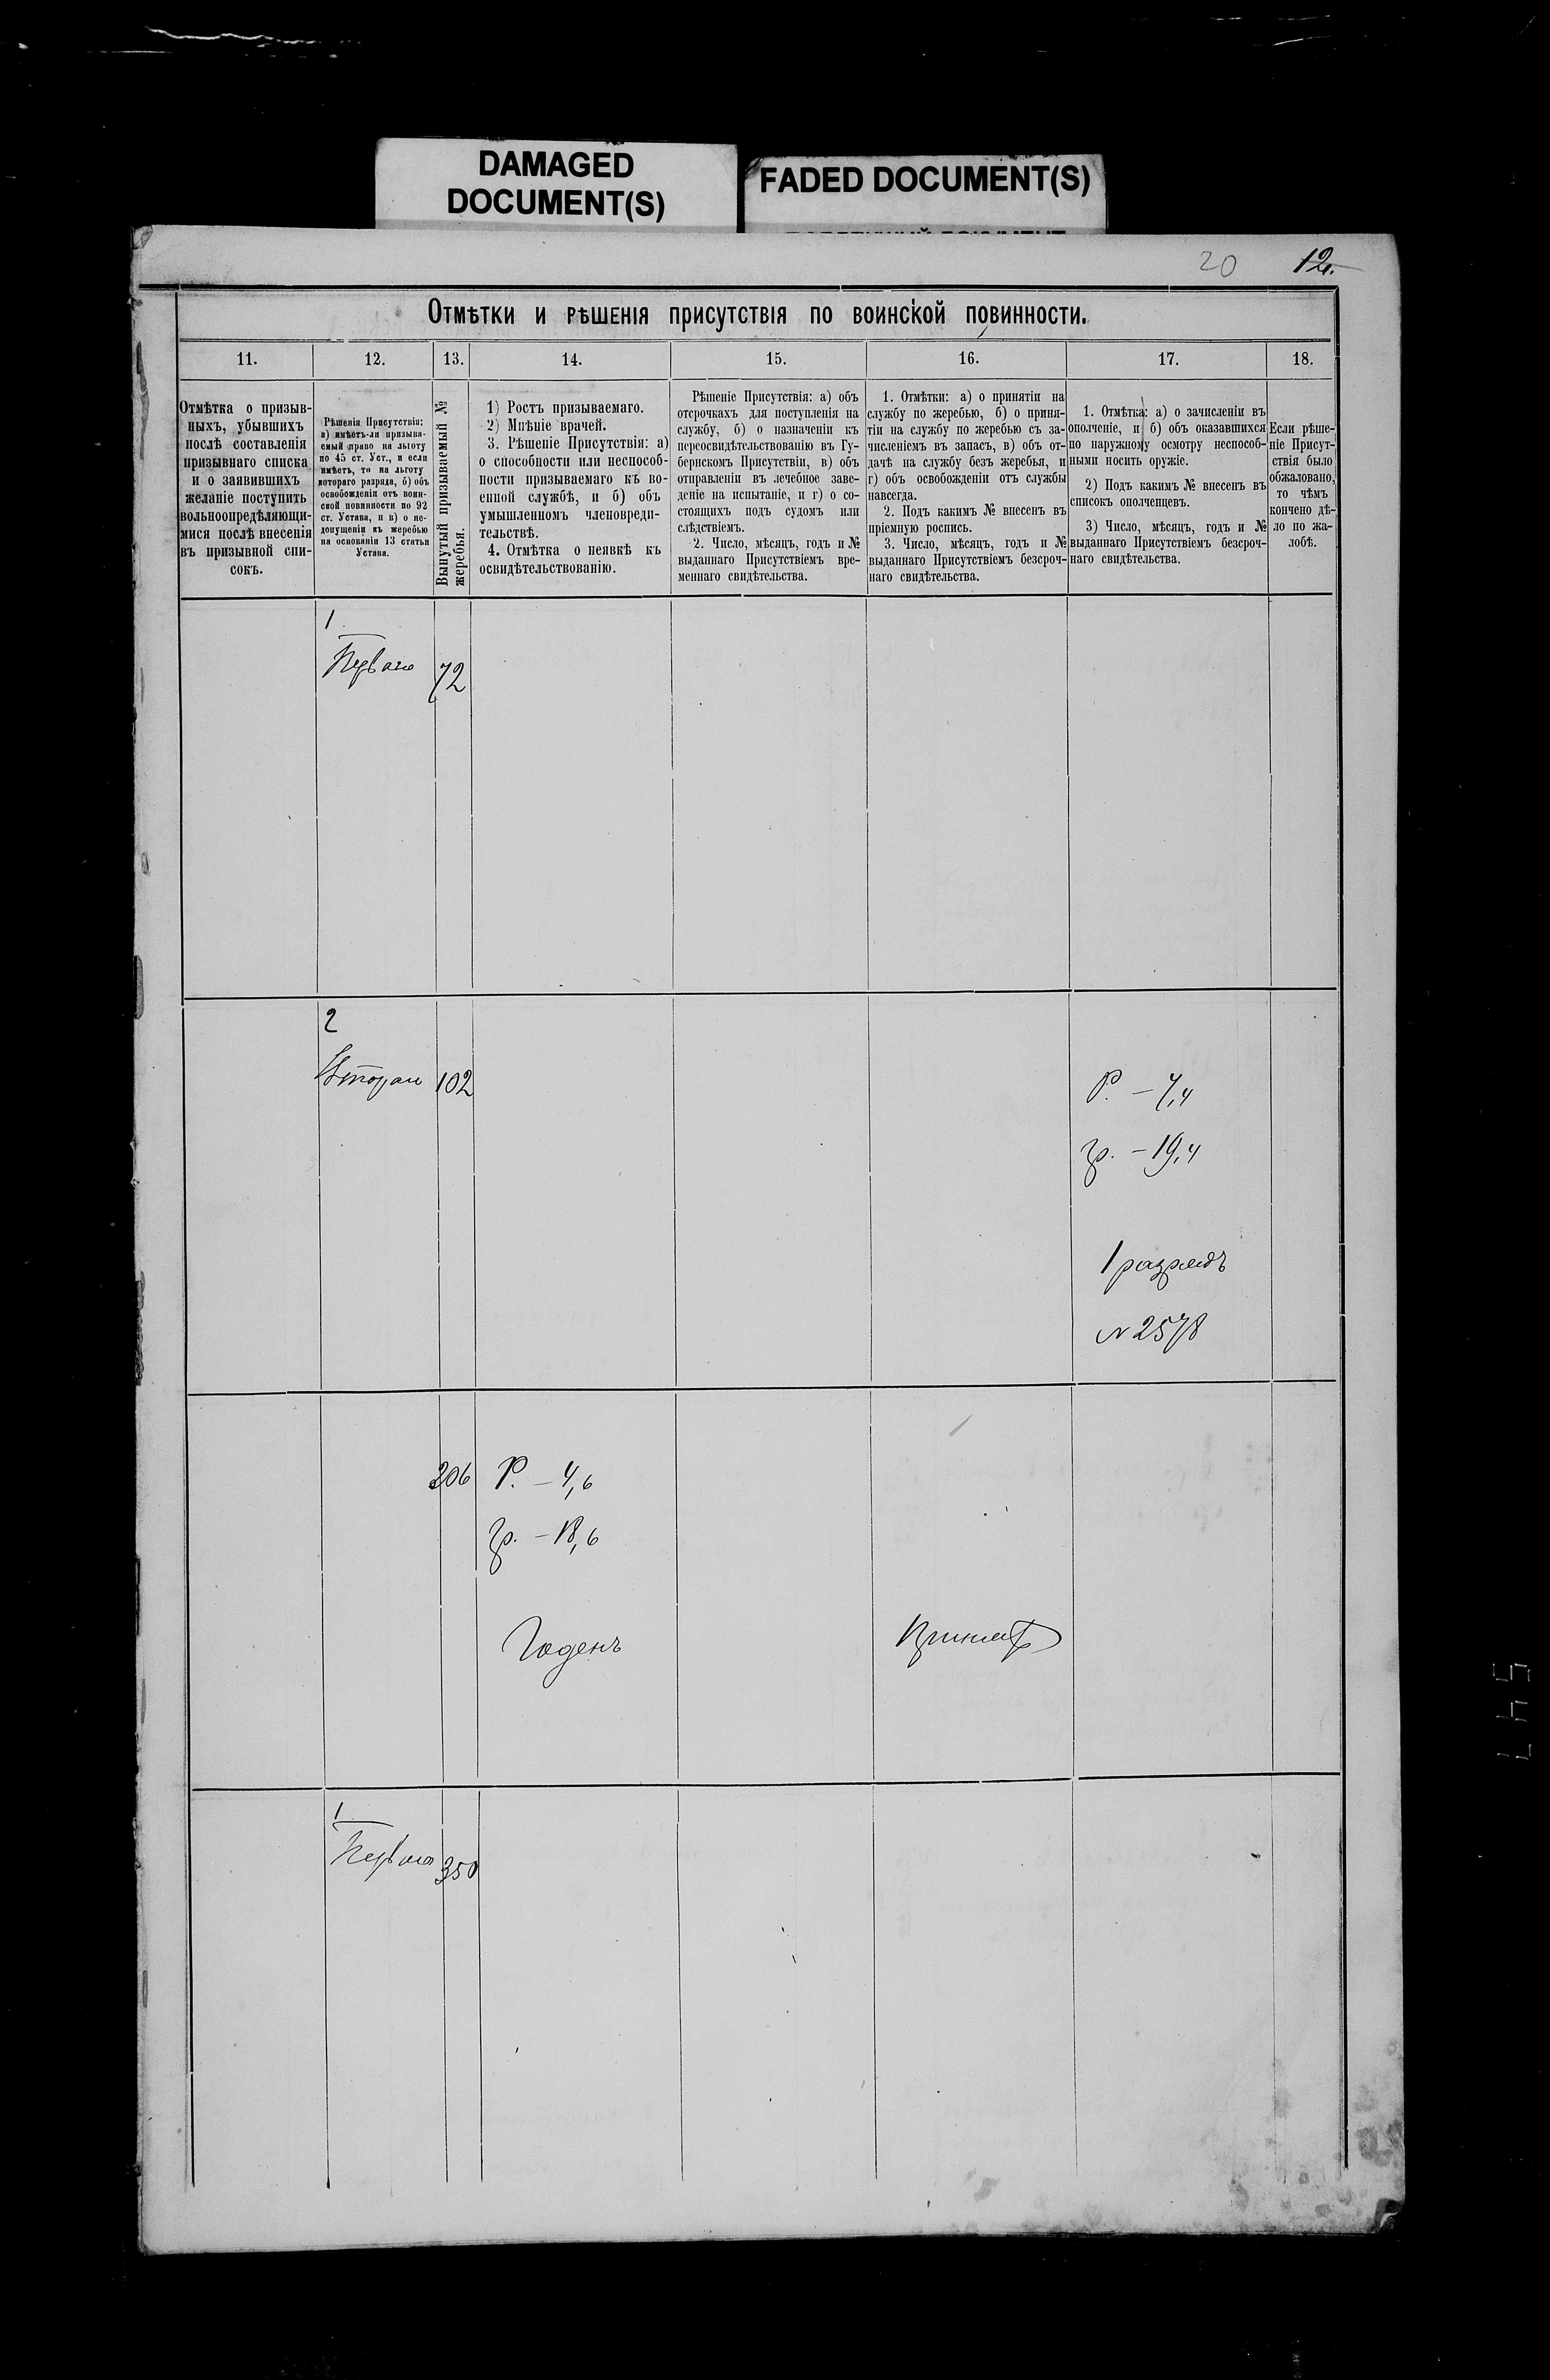 DAMAGED
DOCUMENT(S)
FADED DOCUMENT(S)
20 12.
Отмѣтки и рѣшенія присутствія по воинской повинности.
11. 12. 13. 14. 15. 16. 17. 18.
Отмѣтка о призыв-
ныхъ, убывшихъ
послѣ составленія
призывнаго списка
и о заявившихъ
желаніе поступить
вольноопредѣляющи-
мися послѣ внесенія
въ призывной спи-
сокъ.
Рѣшенія Присутствія:
а) имѣетъ-ли призыва-
емый право на льготу
по 45 ст. Уст., и если
имѣетъ, то на льготу
котораго разряда, б) объ
освобожденіи отъ воин-
ской повинности по 92
ст. Устава, и в) о не-
допущеніи къ жеребью
на основаніи 13 статьи
Устава.
Вынутый призываемый №
жеребья.
1) Ростъ призываемаго.
2) Мнѣніе врачей.
3. Рѣшеніе Присутствія: а)
о способности или неспособ-
ности призываемаго къ во-
енной службѣ, и б) объ
умышленномъ членовреди-
тельствѣ.
4. Отмѣтка о неявкѣ къ
освидѣтельствованію.
Рѣшеніе Присутствія: а) объ
отсрочкахъ для поступленія на
службу, б) о назначеніи къ
переосвидѣтельствованію въ Гу-
бернскомъ Присутствіи, в) объ
отправленіи въ лечебное заве-
деніе на испытаніе, и г) о со-
стоящихъ подъ судомъ или
слѣдствіемъ.
2. Число, мѣсяцъ, годъ и №
выданнаго Присутствіемъ вре-
меннаго свидѣтельства.
1. Отмѣтки: а) о принятіи на
службу по жеребью, б) о приня-
тіи на службу по жеребью съ за-
численіемъ въ запасъ, в) объ от-
дачѣ на службу безъ жеребья, и
г) объ освобожденіи отъ службы
навсегда.
2. Подъ какимъ № внесенъ въ
пріемную роспись.
3. Число, мѣсяцъ, годъ и №
выданнаго Присутствіемъ безсроч-
наго свидѣтельства.
1. Отмѣтка: а) о зачисленіи въ
ополченіе, и б) объ оказавшихся
по наружному осмотру неспособ-
ными носить оружіе.
2) Подъ какимъ № внесенъ въ
списокъ ополченцевъ.
3) Число, мѣсяцъ, годъ и №
выданнаго Присутствіемъ безсроч-
наго свидѣтельства.
Если рѣше-
ніе Присут-
ствія было
обжаловано,
то чѣмъ
кончено дѣ-
ло по жа-
лобѣ.
1
Перваго 72
2
Втораго 102
Р. – 4,4
гр. – 19,4
1 разрядъ
№ 2578
206 Р. – 4,6
гр. – 18,6
Годенъ Принятъ
1
Перваго 350
547